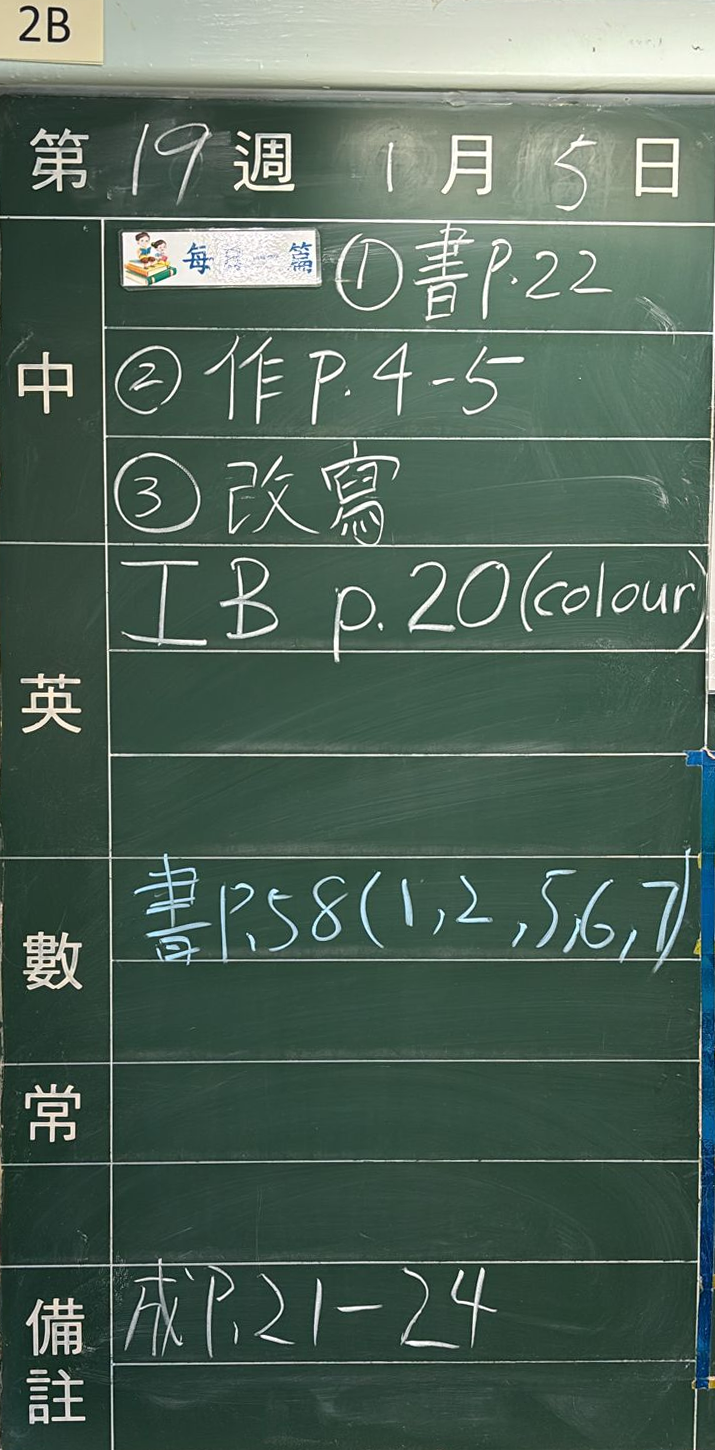 2B
第 19 週 1 月 5 日
中
每 一 篇 ① 書 P.22
② 作 P. 4-5
③ 改寫
英
IB p. 20 (colour)
數
書 P.58 (1, 2, 5, 6, 7)
常
備註
成 P.21-24